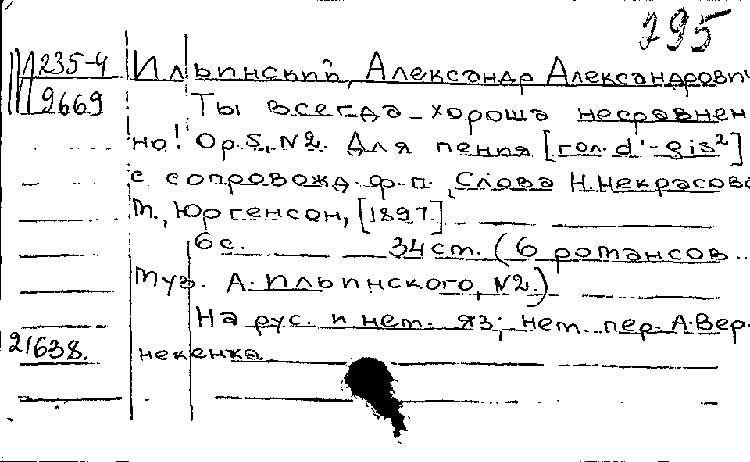 295
М 235-4
9669
Ильинский, Александр Александрович
Ты всегда хороша несравнен
но! Ор. 5, N2. Для пения [гол. d'-gis²]
с сопровожд. ф.-п., Слова Н. Некрасова
М., Юргенсон, [1897.]
6 с. 34 см. (6 романсов..
Муз. А. Ильинского, N2.)
На рус. и нем. яз; нем. пер. А. Вер-
21638. некенка